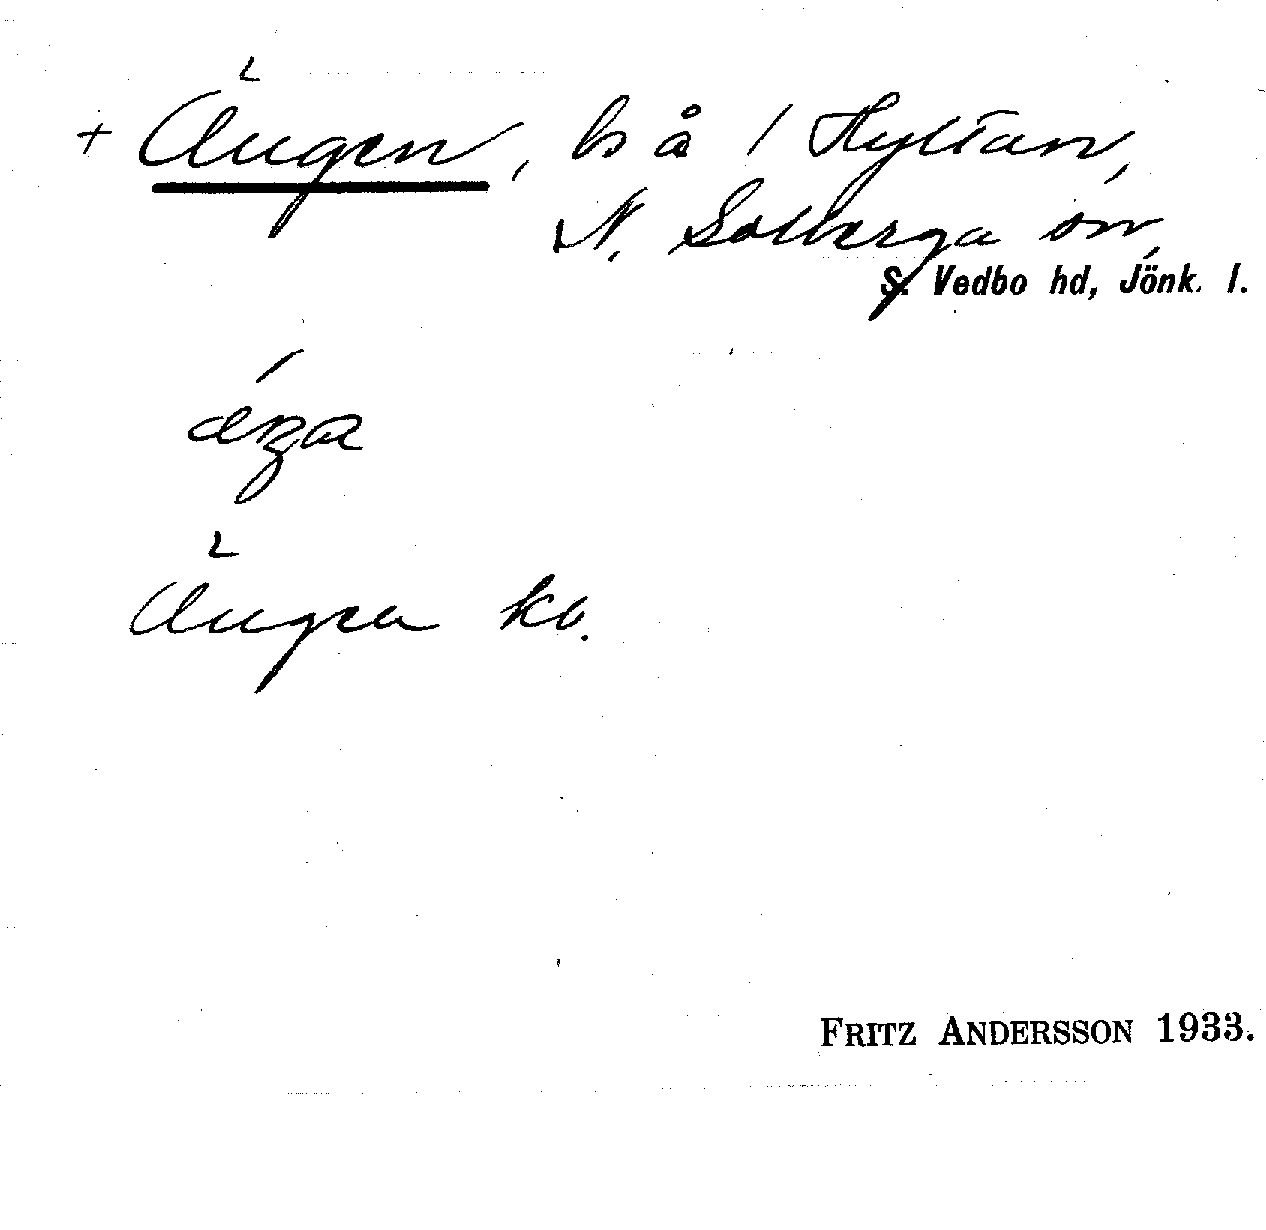 + Ängen, bs å 1 Hyltan,
N. Solberga sn,
S. Vedbo hd, Jönk. l.
Ängen kb.
FRITZ ANDERSSON 1933.